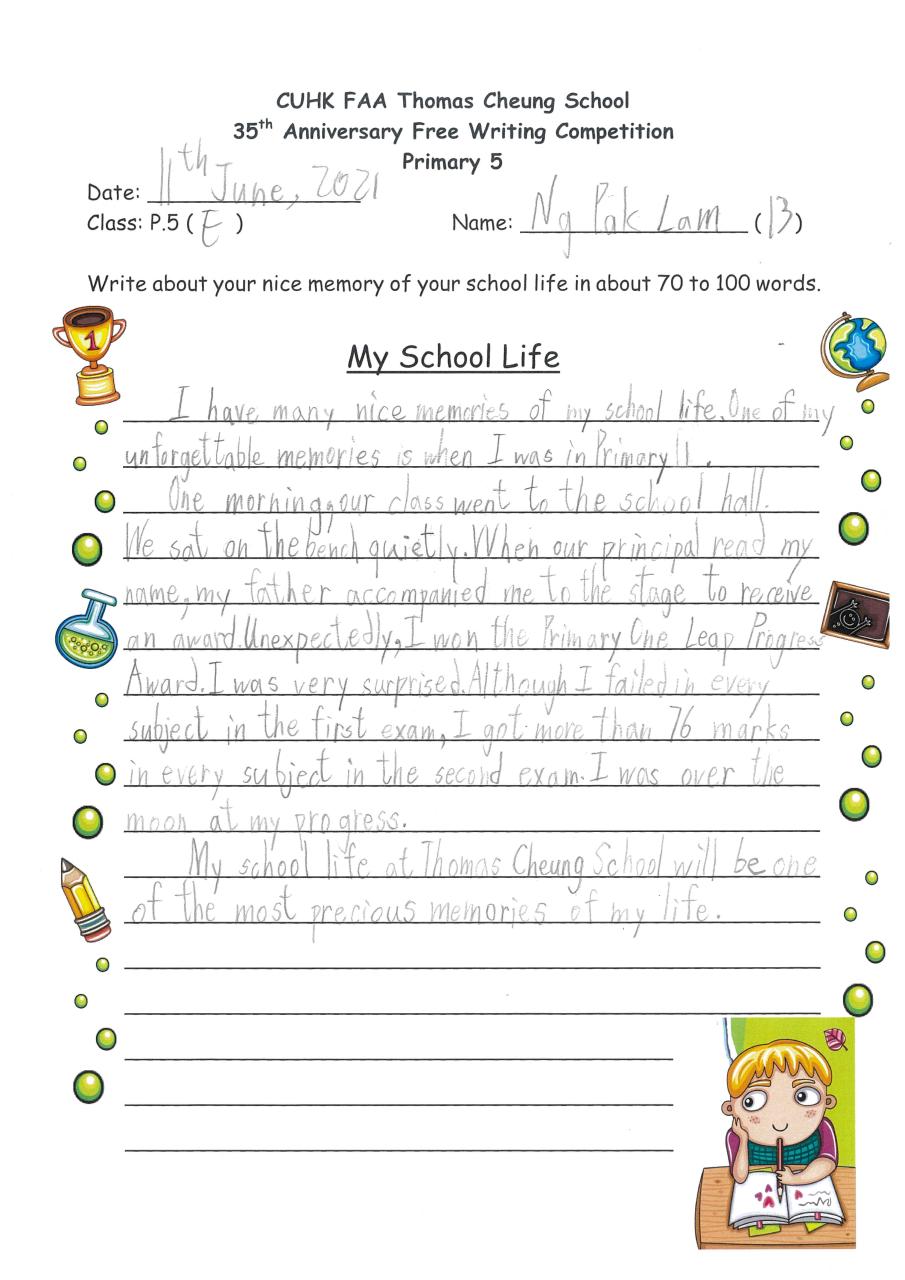 CUHK FAA Thomas Cheung School
35th Anniversary Free Writing Competition
Primary 5
Date: 11th June, 2021
Class: P.5 ( E ) Name: Ng Pak Lam ( 13 )
Write about your nice memory of your school life in about 70 to 100 words.
1
My School Life
I have many nice memories of my school life. One of my
unforgettable memories is when I was in Primary 1.
One morning, our class went to the school hall.
We sat on the bench quietly. When our principal read my
name, my father accompanied me to the stage to receive
an award. Unexpectedly, I won the Primary One Leap Progress
Award. I was very surprised. Although I failed in every
subject in the first exam, I got more than 76 marks
in every subject in the second exam. I was over the
moon at my progress.
My school life at Thomas Cheung School will be one
of the most precious memories of my life.